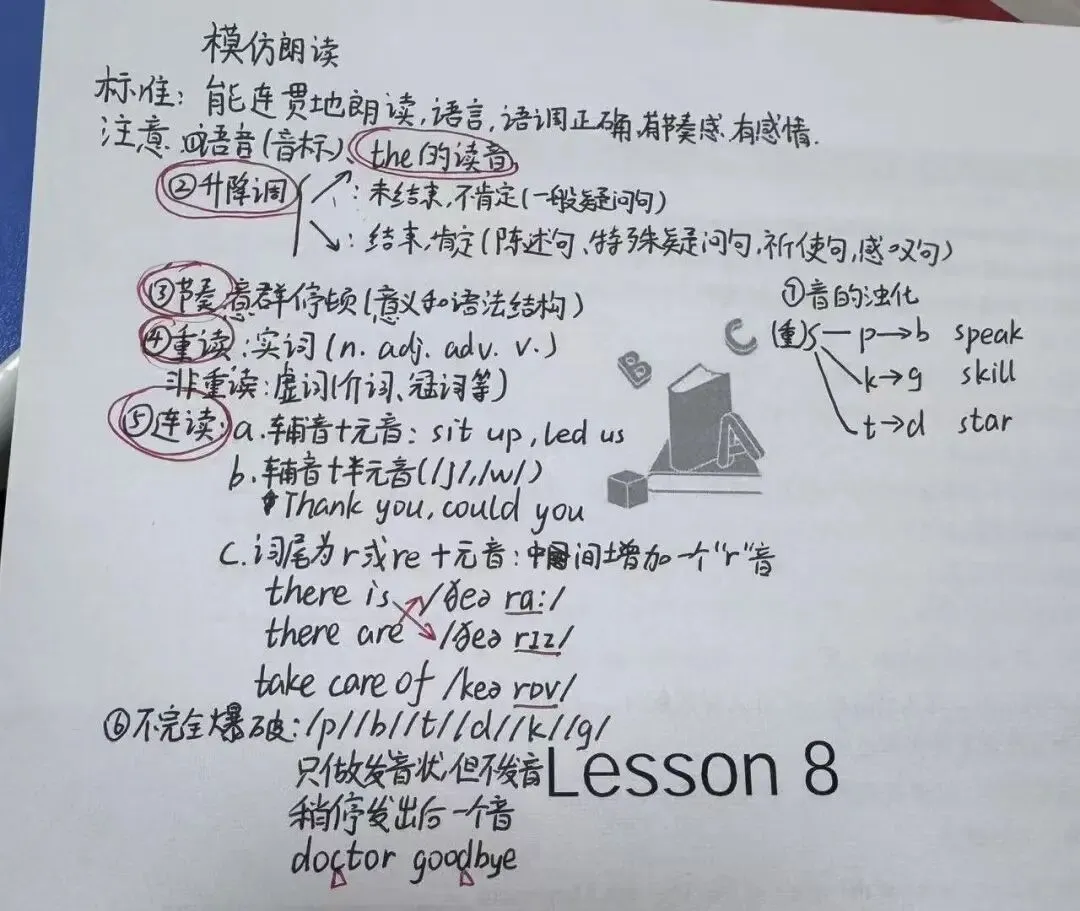 模仿朗读
标准：能连贯地朗读,语言,语调正确,有节奏感.有感情.
注意.①语音(音标)、the的读音,
②升降调 ↗：未结束,不肯定(一般疑问句)
↘：结束,肯定(陈述句、特殊疑问句,祈使句,感叹句)
③节奏,意群停顿(意义和语法结构)
④重读：实词(n. adj. adv. v.)
非重读：虚词(介词、冠词等)
⑤连读：a.辅音+元音：sit up, led us
b.辅音+半元音(/j/,/w/)
Thank you, could you
c.词尾为r或re+元音：中间增加一个"r"音
there is /ðeə ra:/
there are /ðeə rɪz/
take care of /keə rɒv/
⑥不完全爆破：/p//b//t//d//k//g/
只做发音状,但不发音
稍停发出后一个音
doctor goodbye
①音的浊化
(重)s — p→b speak
k→g skill
t→d star
C
B
A
Lesson 8